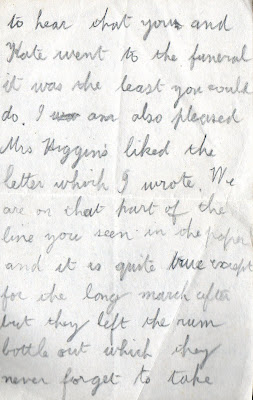 to hear that you and
Kate went to the funeral
it was the least you could
do. I am also pleased
Mrs Higgins liked the
letter which I wrote. We
are on that part of the
line you seen in the paper
and it is quite true except
for the long march after
but they left the rum
bottle out which they
never forget to take